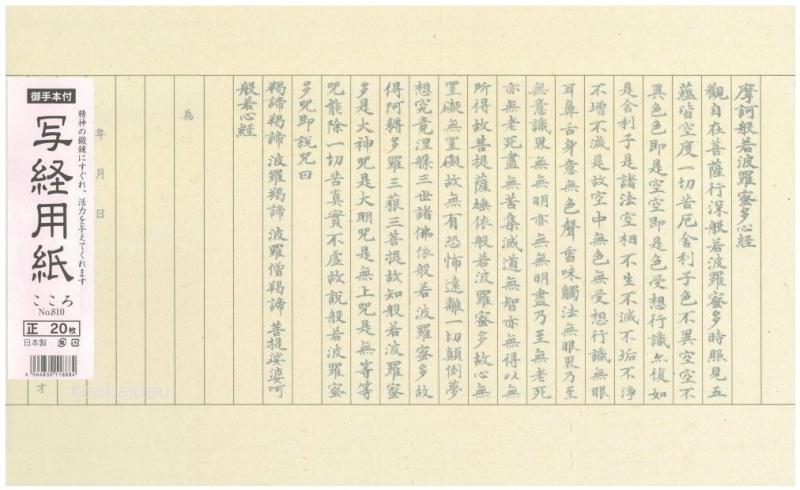 摩訶般若波羅蜜多心経
觀自在菩薩行深般若波羅蜜多時照見五
蘊皆空度一切苦厄舎利子色不異空空不
異色色即是空空即是色受想行識亦復如
是舎利子是諸法空相不生不滅不垢不浄
不増不減是故空中無色無受想行識無眼
耳鼻舌身意無色聲香味觸法無眼界乃至
無意識界無無明亦無無明盡乃至無老死
亦無老死盡無苦集滅道無智亦無得以無
所得故菩提薩埵依般若波羅蜜多故心無
罣礙無罣礙故無有恐怖遠離一切顛倒夢
想究竟涅槃三世諸佛依般若波羅蜜多故
得阿耨多羅三藐三菩提故知般若波羅蜜
多是大神咒是大明咒是無上咒是無等等
咒能除一切苦真實不虚故説般若波羅蜜
多咒即説咒曰
羯諦羯諦波羅羯諦波羅僧羯諦菩提娑婆呵
般若心経
為
年月日
御手本付
精神の鍛錬にすぐれ、活力を与えてくれます
写経用紙
こころ
No.810
正 20枚
日本製
オ